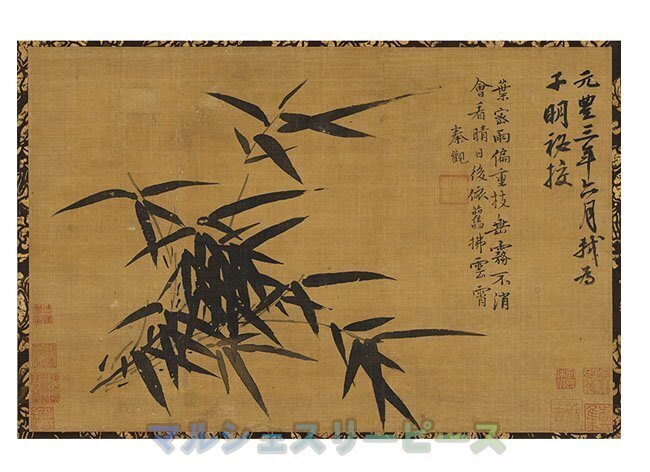 元豊三年六月軾為
子明秘挍
葉密雨偏重枝垂霧不消
會看晴日後依舊拂雲霄
秦觀
マルシェスリーピース